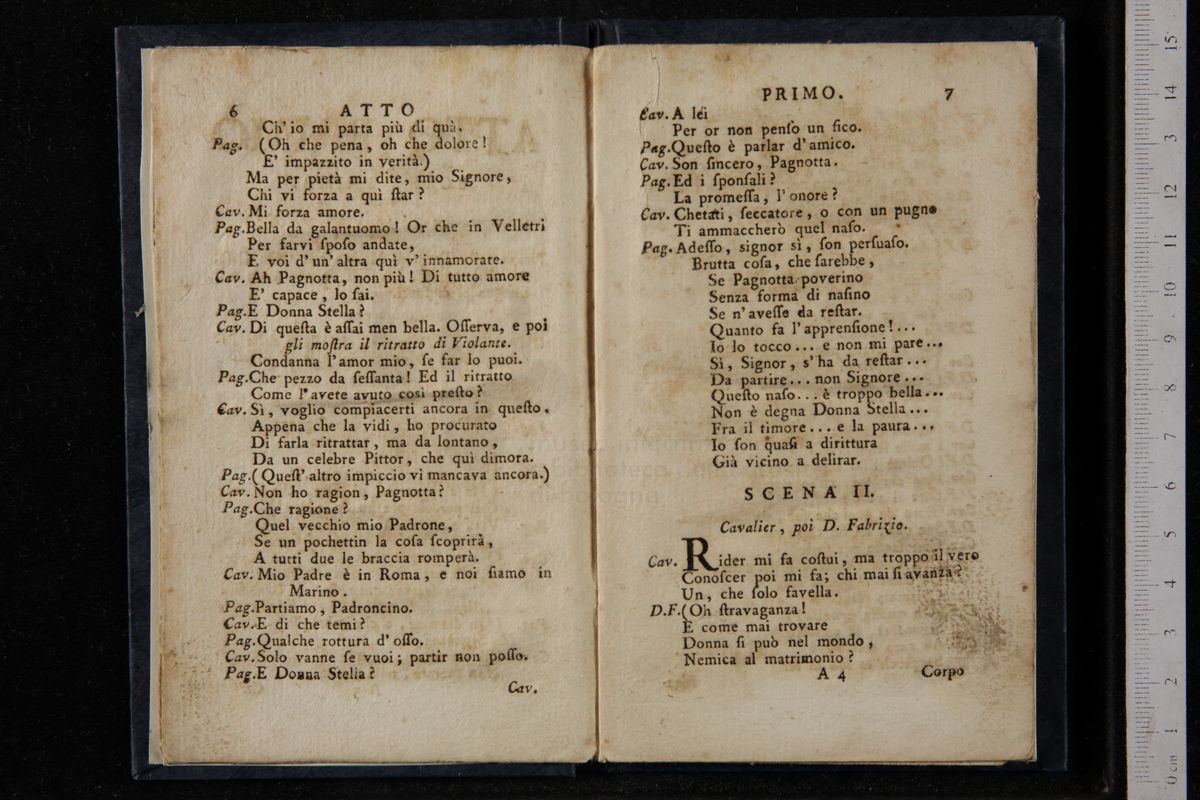 6 ATTO
Ch' io mi parta più di quà.
Pag. (Oh che pena, oh che dolore!
E' impazzito in verità.)
Ma per pietà mi dite, mio Signore,
Chi vi forza a quì ſtar?
Cav. Mi forza amore.
Pag. Bella da galantuomo! Or che in Velletri
Per farvi ſpoſo andate,
E voi d' un' altra quì v' innamorate.
Cav. Ah Pagnotta, non più! Di tutto amore
E' capace, lo ſai.
Pag. E Donna Stella?
Cav. Di queſta è aſſai men bella. Oſſerva, e poi
gli moſtra il ritratto di Violante.
Condanna l' amor mio, ſe far lo puoi.
Pag. Che pezzo da ſeſſanta! Ed il ritratto
Come l' avete avuto così preſto?
Cav. Sì, voglio compiacerti ancora in queſto.
Appena che la vidi, ho procurato
Di farla ritrattar, ma da lontano,
Da un celebre Pittor, che quì dimora.
Pag. (Queſt' altro impiccio vi mancava ancora.)
Cav. Non ho ragion, Pagnotta?
Pag. Che ragione?
Quel vecchio mio Padrone,
Se un pochettin la coſa ſcoprirà,
A tutti due le braccia romperà.
Cav. Mio Padre è in Roma, e noi ſiamo in
Marino.
Pag. Partiamo, Padroncino.
Cav. E di che temi?
Pag. Qualche rottura d' oſſo.
Cav. Solo vanne ſe vuoi; partir non poſſo.
Pag. E Donna Stella?
Cav.
PRIMO. 7
Cav. A lei
Per or non penſo un fico.
Pag. Queſto è parlar d' amico.
Cav. Son ſincero, Pagnotta.
Pag. Ed i ſponſali?
La promeſſa, l' onore?
Cav. Chetati, ſeccatore, o con un pugno
Ti ammaccherò quel naſo.
Pag. Adeſſo, signor sì, ſon perſuaſo.
Brutta coſa, che ſarebbe,
Se Pagnotta poverino
Senza forma di naſino
Se n' aveſſe da reſtar.
Quanto fa l' apprenſione!...
Io lo tocco... e non mi pare...
Sì, Signor, s' ha da reſtar...
Da partire... non Signore...
Queſto naſo... è troppo bella...
Non è degna Donna Stella...
Fra il timore... e la paura...
Io ſon quaſi a dirittura
Già vicino a delirar.
SCENA II.
Cavalier, poi D. Fabrizio.
Cav. Rider mi fa coſtui, ma troppo il vero
Conoſcer poi mi fa; chi mai ſi avanza?
Un, che ſolo favella.
D.F. (Oh ſtravaganza!
E come mai trovare
Donna ſi può nel mondo,
Nemica al matrimonio?
A 4 Corpo
0 cm 1 2 3 4 5 6 7 8 9 10 11 12 13 14 15